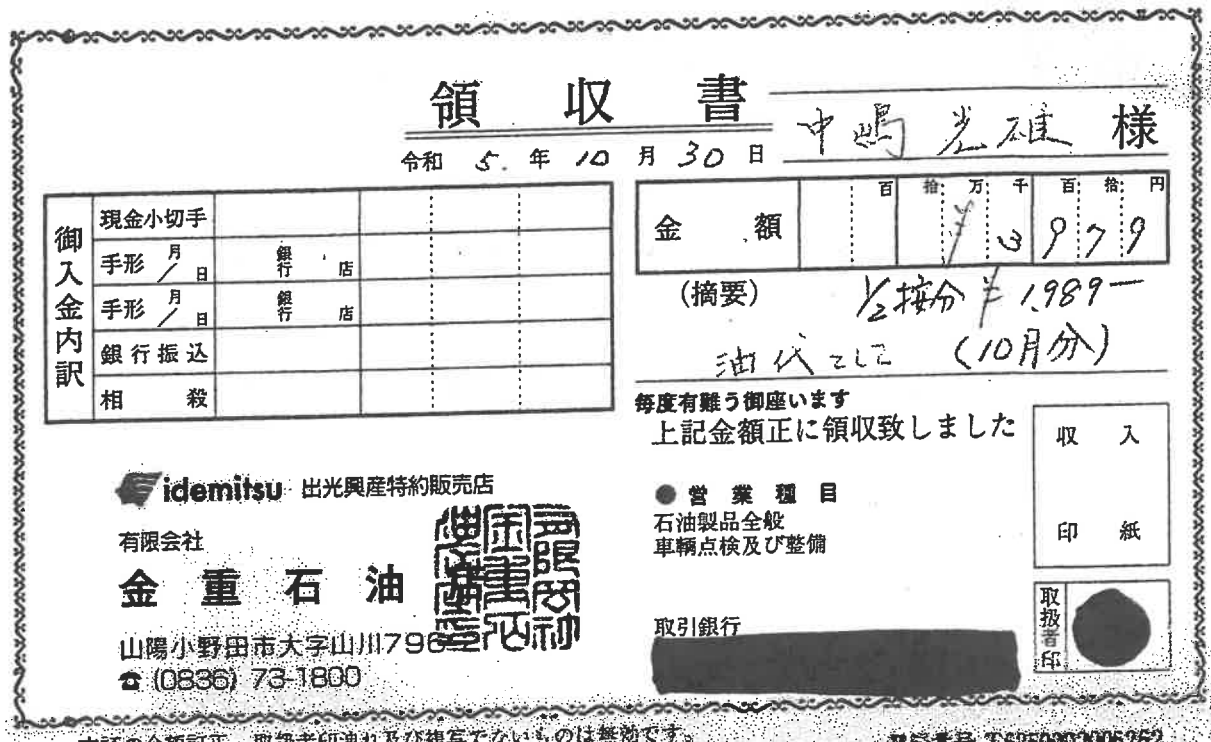 領収書
中嶋光雄 様
令和 5. 年 10 月 30 日
御入金内訳
現金小切手
手形 月/日 銀行 店
手形 月/日 銀行 店
銀行振込
相殺
金額 百 拾 万 千 百 拾 円
¥3979
(摘要) 1/2按分 ¥1,989ー
油代として (10月分)
毎度有難う御座います
上記金額正に領収致しました
収入印紙
idemitsu 出光興産特約販売店
有限会社
金重石油
山陽小野田市大字山川796
☎ (0836) 73-1800
● 営業種目
石油製品全般
車輌点検及び整備
取引銀行
取扱者印
の金額訂正、取扱者印洩れ及び複写でないものは無効です。
登録番号